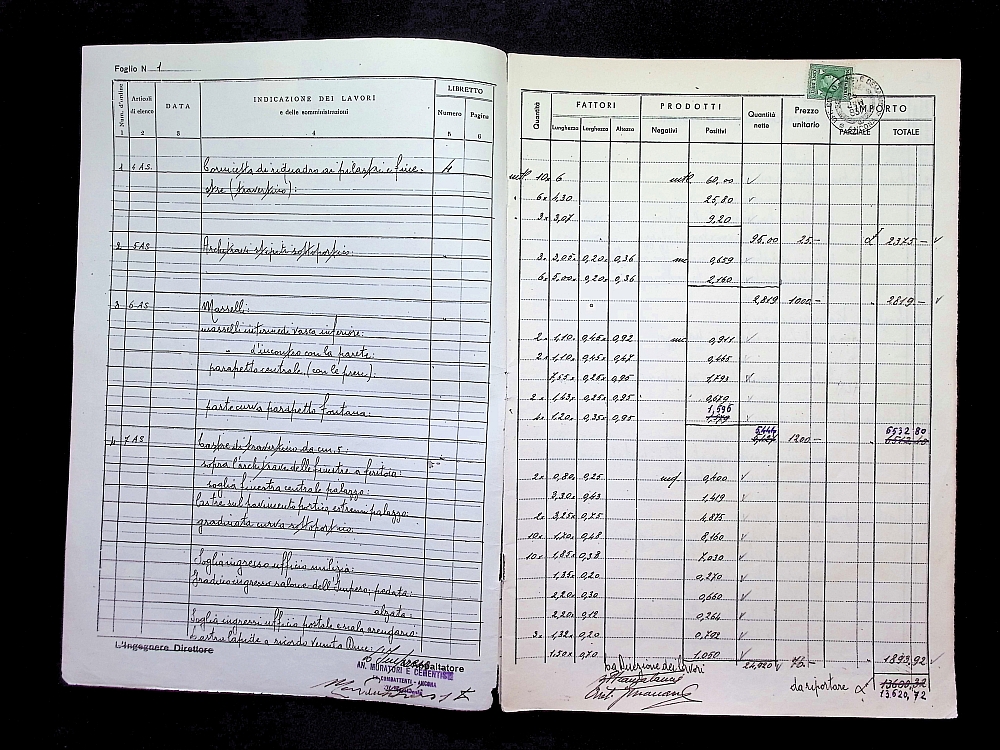 Foglio N 1
Num. d'ordine
Articoli di elenco
DATA
INDICAZIONE DEI LAVORI
e delle somministrazioni
LIBRETTO
Numero Pagina
1 2 3 4 5 6
1 4 AS. Cornicetta di riquadro ai pilastri e fine- 4
stre (travertino):
2 5 AS Architravi stipiti sottoportico: "
3 6 AS Masselli: "
masselli intermedi vasca inferiore:
" d'incontro con la parete:
parapetto centrale (con le prese):
parte curva parapetto fontana:
4 7 AS Lastre di travertino da cm. 5:
sopra l'architrave delle finestre a feritoia:
soglia finestra centrale palazzo:
Lastre sul pavimento portico estremi palazzo:
graduata curva sottoportico:
Soglia ingresso ufficio milizia:
Gradino ingresso salone dell'Impero, pedata:
alzata:
Soglia ingressi ufficio postale e scala arengario:
Lastra lapide a ricordo venuta Duce:
L'Ingegnere Direttore
AN. MURATORI E CEMENTISTI
EX COMBATTENTI - ANCONA
Quantità
FATTORI
Lunghezza Larghezza Altezza
PRODOTTI
Negativi Positivi
Quantità nette
Prezzo unitario
IMPORTO
PARZIALE TOTALE
10x 6 60,00
6x 4,30 25,80
3x 3,07 9,20
95.00 25.- 2375.-
3x 3,05x 0,20x 0,36 mc 0,659
6x 5,00x 0,20x 0,36 2,160
2,819 1000,- 2819.-
2x 1,10x 0,45x 0,92 mc 0,911
2x 1,10x 0,45x 0,47 0,465
7,55x 0,25x 0,95 1,793
2x 1,43x 0,25x 0,95 0,679
1,596
4x 1,20x 0,35x 0,95
5,444 6532.80
1200.-
2x 0,80x 0,25 mq 0,400
3,30x 0,43 1,419
2x 3,25x 0,75 4,875
10x 1,70x 0,48 8,160
10x 1,85x 0,38 7,030
1,35x 0,20 0,270
2,20x 0,30 0,660
2,20x 0,12 0,264
3x 1,32x 0,20 0,702
1,50x 0,70 1,050
24,920 76.- 1893,92
La Direzione dei Lavori
da riportare 13600,32
13620,72